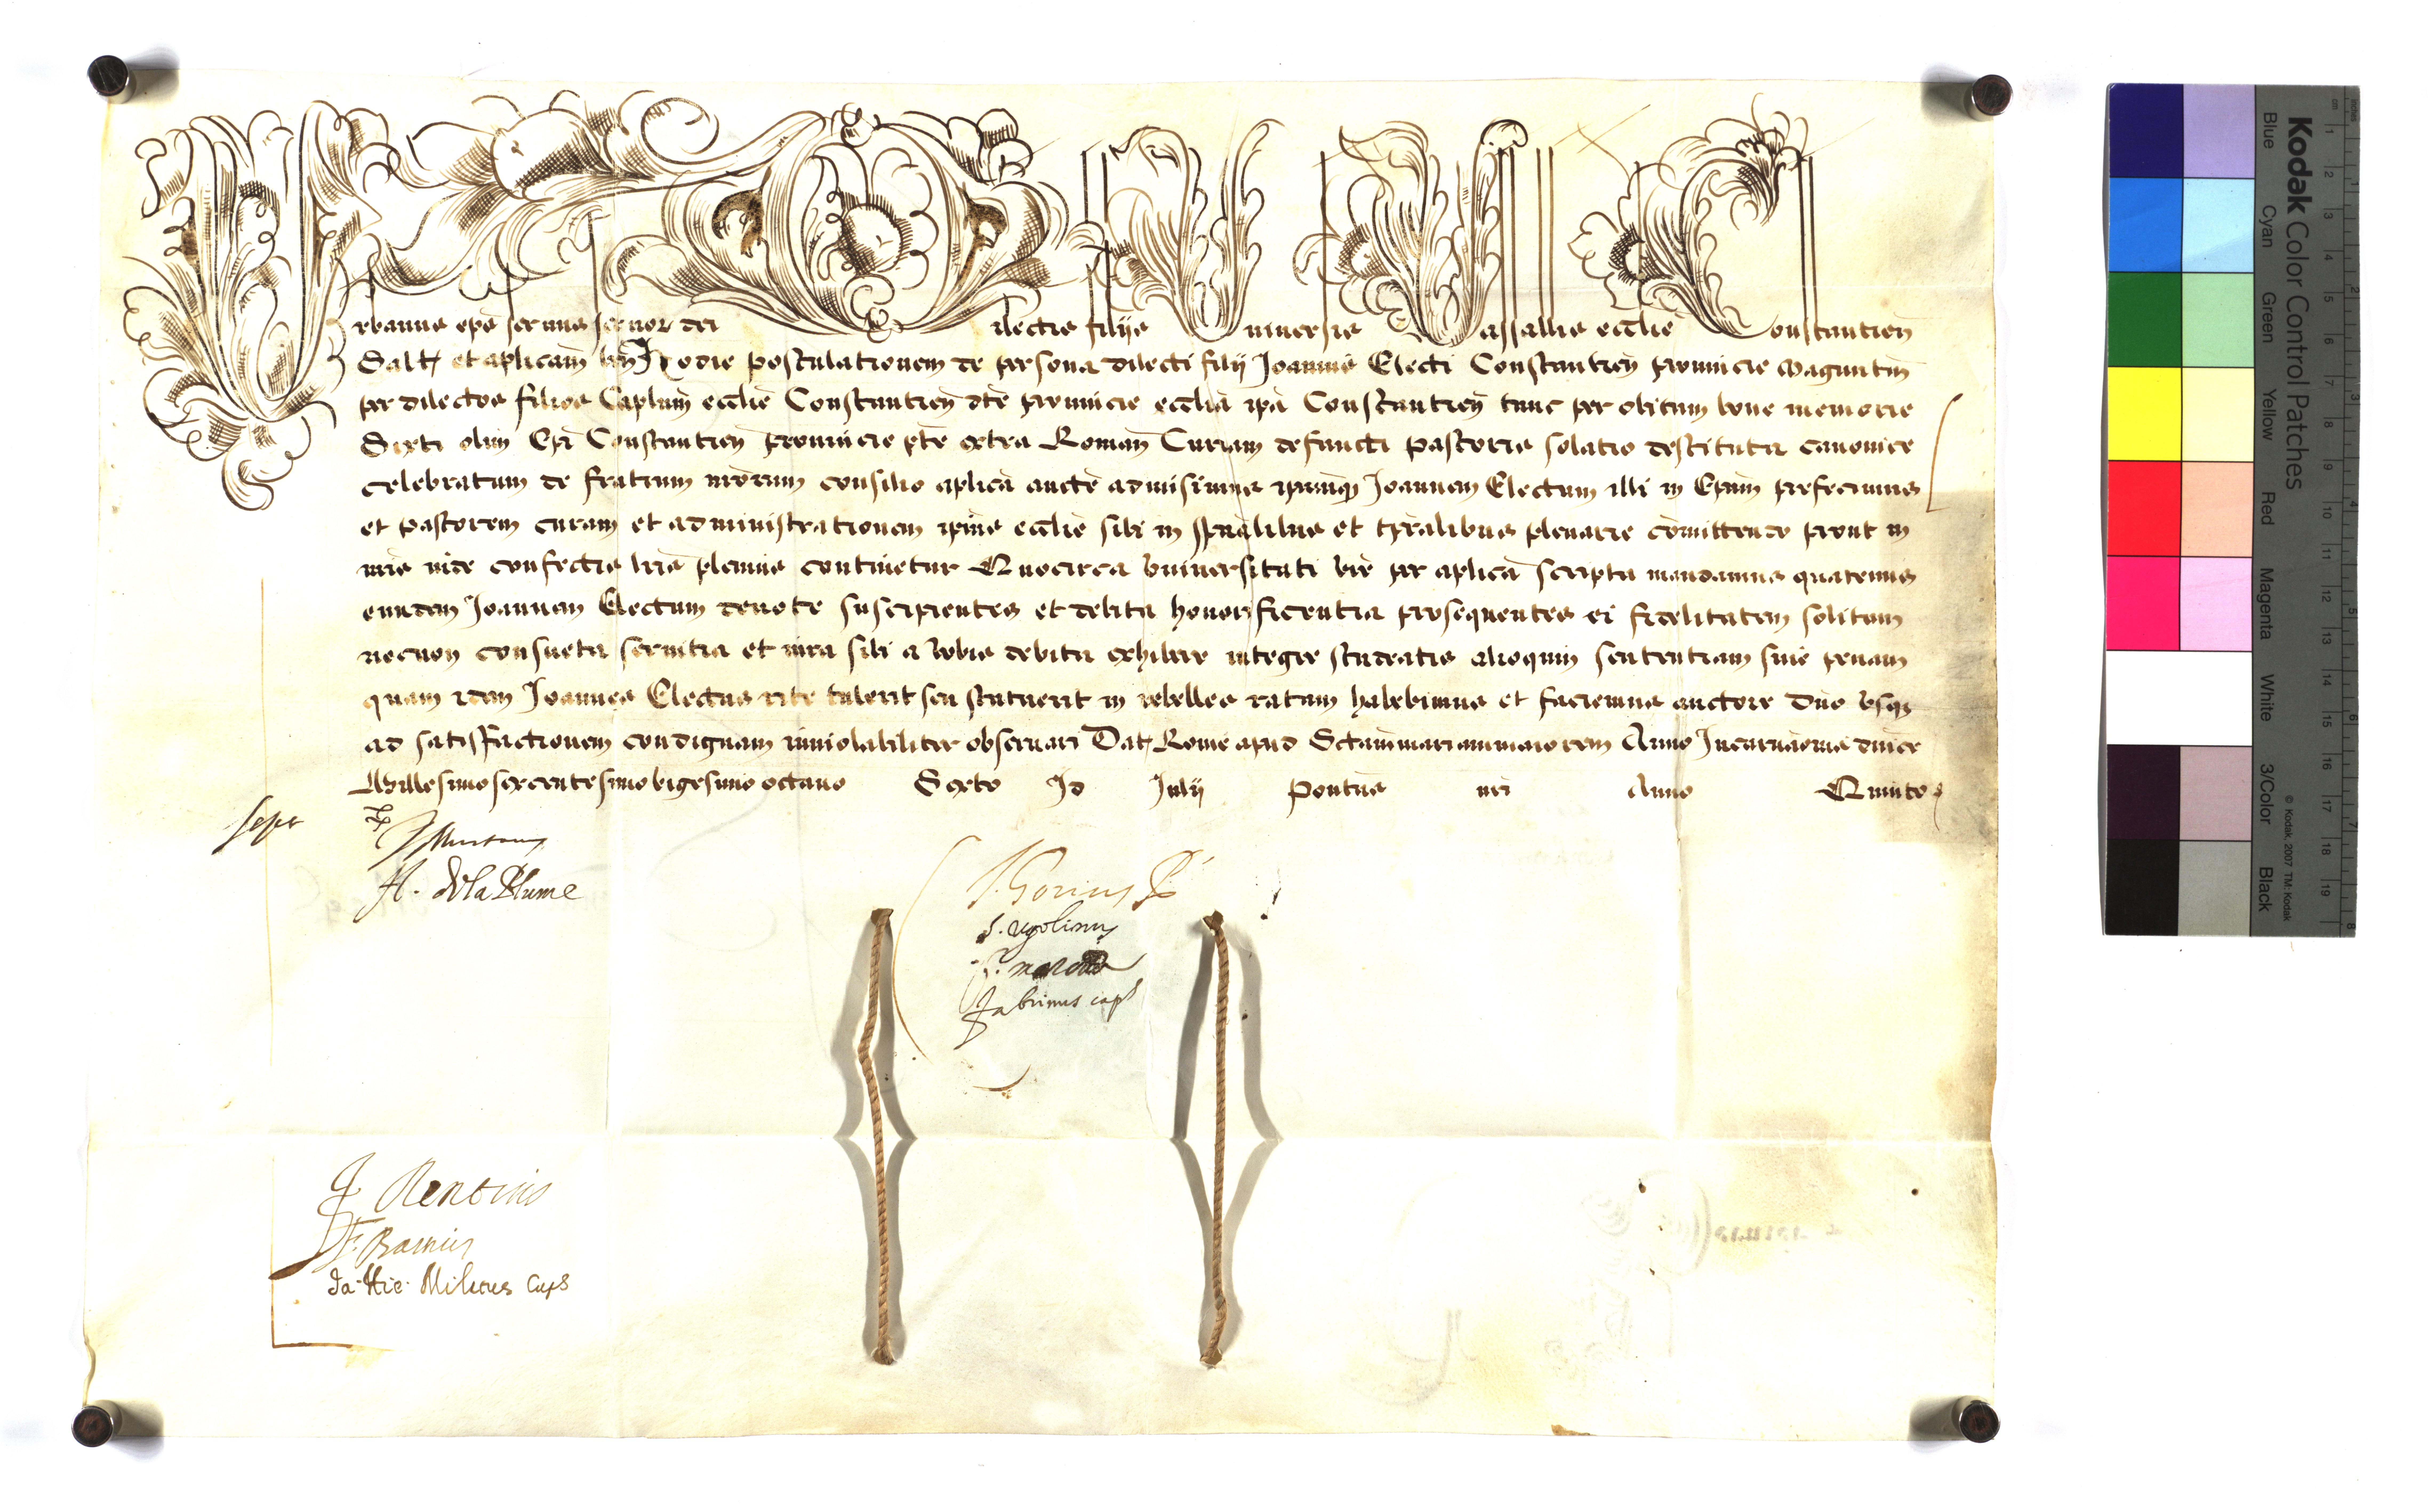 Urbanus epus seruus seruor dei Dilectis filijs Uniuersis Vassallis ecclie Constantien
Salt et aplicam ben Hodie postulationem de persona dilecti filij Joannis Electi Constantien prouincie Maguntin
per dilectos filios Caplum ecclie Constantien dte prouincie ecclia ipa Constantien tunc per obitum bone memorie
Sixti olim Epi Constantien prouincie pte extra Roman Curiam defuncti Pastoris solatio destituta canonice
celebratam de fratrum nrorum consilio aplica aucte admisimus ipsumq Joannem Electum illi in Epum prefecimus
et Pastorem curam et administrationem ipius ecclie sibi in spualibus et tpralibus plenarie comittendo prout in
nris inde confectis lris plenius continetur Quocirca vniuersitati vre per aplica scripta mandamus quatenus
eundem Joannem Electum deuote suscipientes et debita honorificentia prosequentes ei fidelitatem solitam
necnon consueta seruitia et iura sibi a vobis debita exhibere integre studeatis alioquin sententiam siue penam
quam idem Joannes Electus rite tulerit seu statuerit in rebelles ratam habebimus et faciemus auctore Dno vsq
ad satisfactionem condignam inuiolabiliter obseruari Dat Rome apud Sctammariammaiorem Anno Incarnaonis dnice
Millesimosexcentesimovigesimo octauo Sexto Id Julij Pontus nri Anno Quinto
A. DelaPlume
J. Gorius
S. Vgolinus
Fabrinus caps
F. Rentius
F. Barnius
Ja. Hie. Militus Caps
Kodak Color Control Patches
Blue Cyan Green Yellow Red Magenta White 3/Color Black
© Kodak, 2007 TM: Kodak
cm 1 2 3 4 5 6 7 8 9 10 11 12 13 14 15 16 17 18 19
inches 1 2 3 4 5 6 7 8